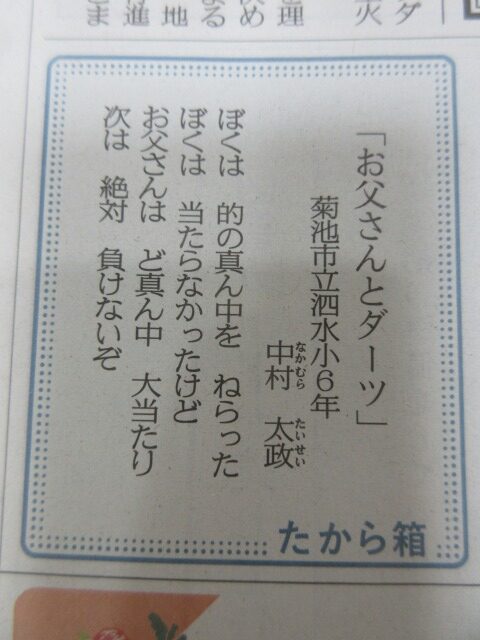 「お父さんとダーツ」
菊池市立泗水小6年
中村 太政
なかむら たいせい
ぼくは 的の真ん中を ねらった
ぼくは 当たらなかったけど
お父さんは ど真ん中 大当たり
次は 絶対 負けないぞ
たから箱